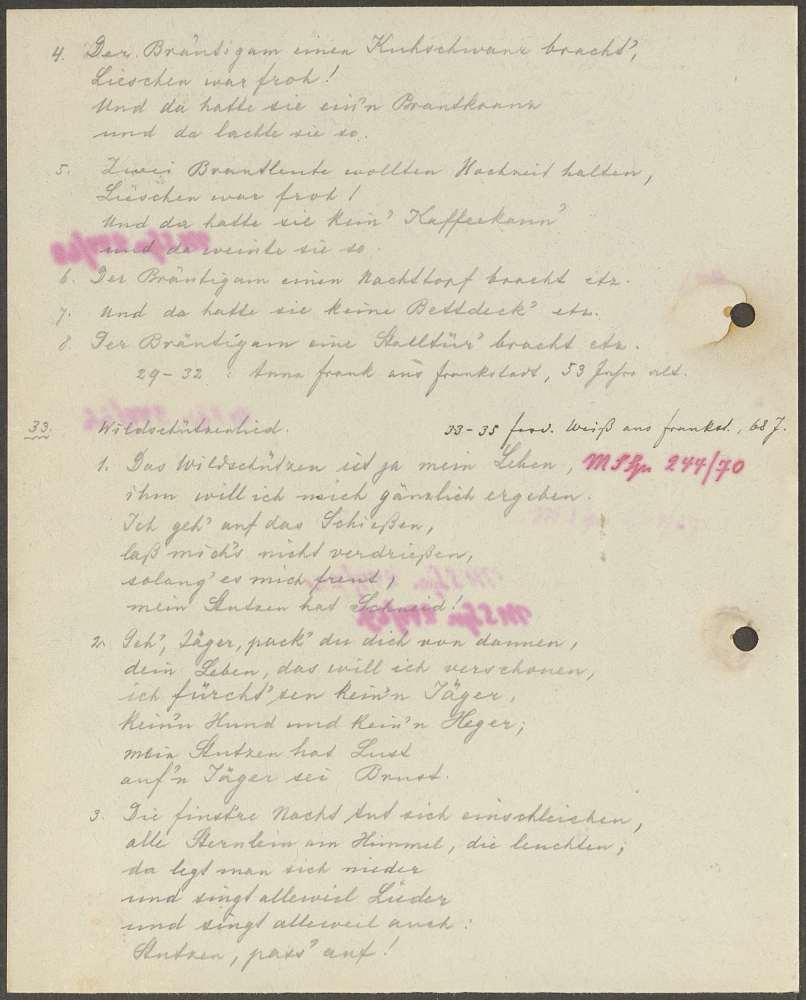 4. Der Bräutigam einen Kuhschwanz bracht',
Lieschen war froh!
Und da hatte sie ein'n Brautkranz
und da lachte sie so.
5. Zwei Brautleute wollten Hochzeit halten,
Lieschen war froh!
Und da hatte sie kein' Kaffeekann'
und da weinte sie so.
6. Der Bräutigam einen Nachttopf bracht etz.
7. Und da hatte sie keine Bettdeck' etz.
8. Der Bräutigam eine Stalltür' bracht etz.
29-32 : Anna Frank aus Frankstadt, 53 Jahre alt.
33. Wildschützenlied. 33-35 Ferd. Weiß aus Frankst., 68 J.
1. Das Wildschützen ist ja mein Leben, 244/70
ihm will ich mich gänzlich ergeben.
Ich geh' auf das Schießen,
laß mich's nicht verdrießen,
solang' es mich freut,
mein Stutzen hat Schneid!
2. Geh', Jäger, pack' du dich von dannen,
dein Leben, das will ich verschonen,
ich fürcht' ein'n Jäger,
kein'n Hund und kein'n Heger;
mein Stutzen hat Lust
auf'n Jäger sei Brust.
3. Die finst're Nacht tut sich einschleichen,
alle Sternlein am Himmel, die leuchten;
da legt man sich nieder
und singt alleweil Lieder
und singt alleweil auch:
Stutzen, pass' auf!